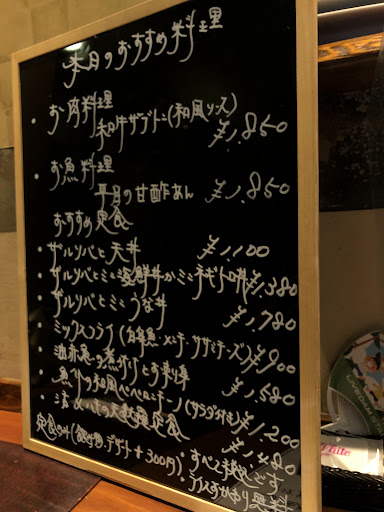 本日のおすすめ料理
・お肉料理
和牛ザブトン(和風ソース)
¥1,850
・お魚料理
平目の甘酢あん ¥1,850
おすすめ定食
・ザルソバと天丼 ¥1,100
・ザルソバとミニ海鮮丼かミニネギトロ丼¥1,380
・ザルソバとミニうな丼 ¥1,780
・ミックスフライ(白身魚・メンチ・ササミチーズ)¥900
¥1,580
の和風ペペロンチーノ(サラダ付き)¥1,200
定食 ¥1,480
定食のみ( デザート+300円)・すべて税込です
・ライス大盛り無料